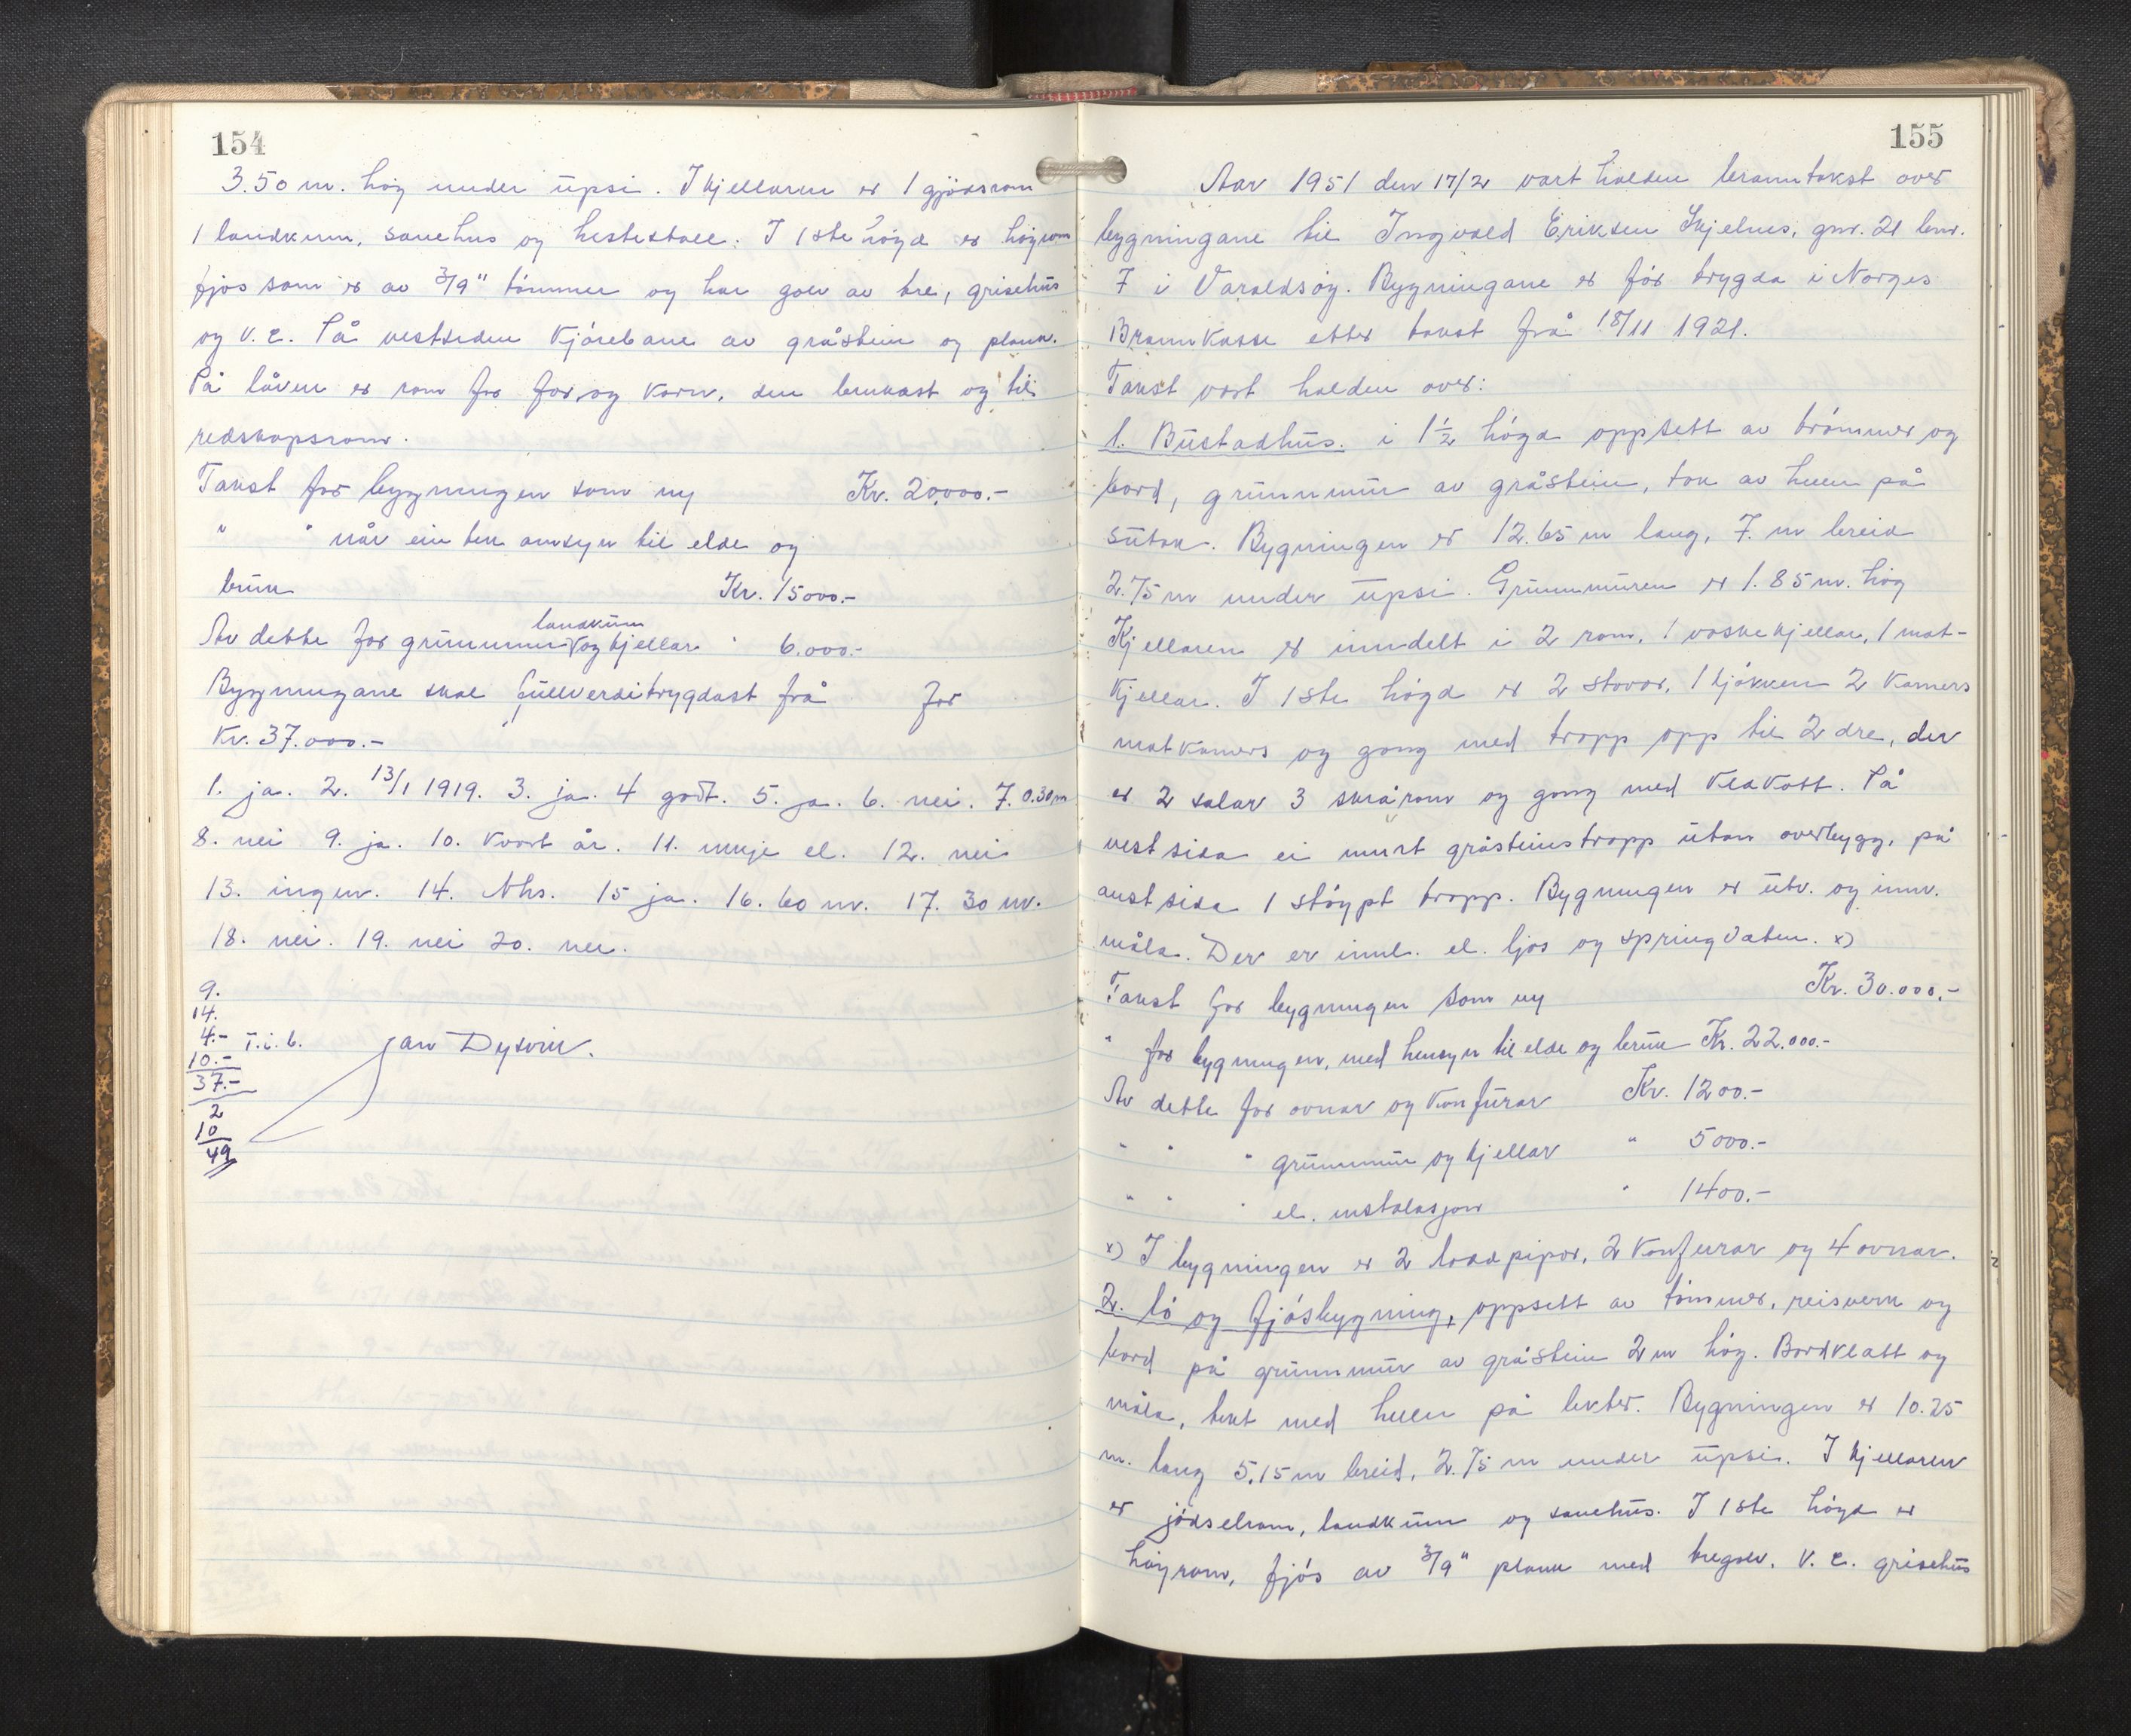 154
3.50 m. høg under upsi. I kjellaren er 1 gjødsrom
1 landkum, sauehus og hestestall. I 1ste høgd er høyrom
fjos som er av 3/9" tømmer og har golv av tre, grisehus
og v. c. På vestsiden kjørebane av gråstein og plank.
På låven er rom for for og korn, den brukast og til
redskapsrom.
Takst for bygningen som ny Kr. 20.000.-
" " når ein tek omsyn til elde og
bruk Kr. 15000.-
landkum
Av dette for grunnmur og kjellar " 6.000.-
Bygningane skal fullverditrygdast frå for
Kr. 37.000.-
1. ja. 2. 13/1 1919. 3. ja. 4 godt. 5. ja. 6. nei. 7. 0.30 m
8. nei 9. ja. 10. kvart år. 11. muje el. 12. nei
13. ingen. 14. Nhs. 15 ja. 16. 60 m. 17. 30 m.
18. nei. 19. nei 20. nei.
9.
14.
4.- T.i.b. Jan Dysvik.
10.-
37.-
2
10
49
155
Aar 1951 den 17/2 vart halden branntakst over
bygningane til Ingvald Eriksen Skjelnes, gnr. 21 bnr.
7 i Varaldsøy. Bygningane er før trygda i Norges
Brannkasse etter takst frå 18/11 1921.
Takst vart halden over:
1. Bustadhus. i 1 1/2 høgd oppsett av trømmer og
bord, grunnmur av gråstein, tak av heller på
sutak. Bygningen er 12.65 m lang, 7. m breid
2.75 m under upsi. Grunnmuren er 1.85 m. høg
Kjellaren er inndelt i 2 rom, 1 vaskekjellar, 1 mat-
kjellar. I 1ste høgd er 2 stovor, 1 kjøkken 2 kamers
matkamers og gong med tropp opp til 2dre, der
er 2 salar 3 skrårom og gong med klekott. På
vestsida ei murt gråsteinstropp utan overbygg, på
austsida 1 støypt tropp. Bygningen er utv. og innv.
måla. Der er innl. el. ljos og springvaten. x)
Takst for bygningen som ny Kr. 30.000.-
" for bygningen, med hensyn til elde og bruk Kr. 22.000.-
Av dette for ovnar og komfurar Kr. 1200.-
" " " grunnmur og kjellar " 5000.-
" " " el. instalasjon " 1400.-
x) I bygningen er 2 loddpipor, 2 komfurar og 4 ovnar.
2. Lø og fjøsbygning, oppsett av tømmer, reisverk og
bord på grunnmur av gråstein 2 m høg. Bordklatt og
måla, tekt med heller på lekter. Bygningen er 10.25
m. lang 5.15 m breid, 2.75 m under upsi. I kjellaren
er jødselrom, landkum og sauehus. I 1ste høgd er
høyrom, fjøs av 3/9" plank med tregolv, v. c. grisehus